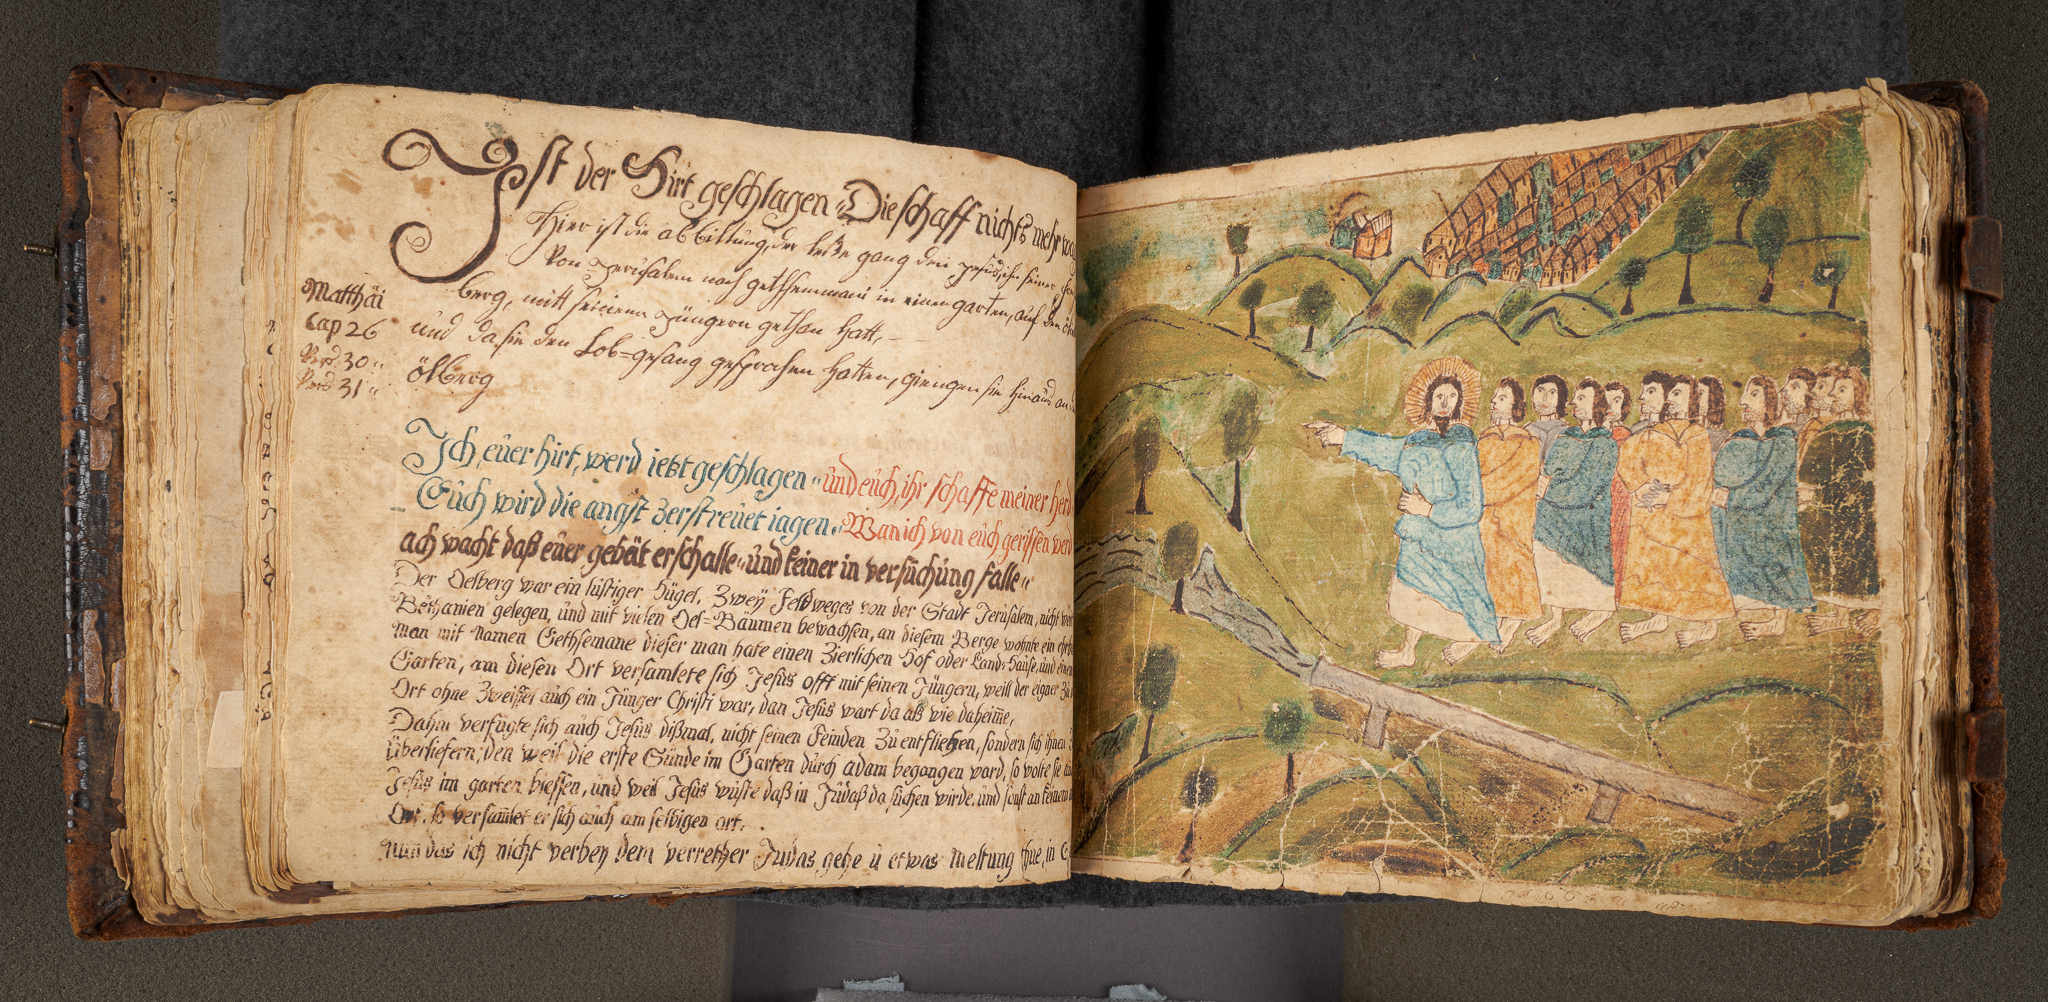 Ist der Hirt geschlagen "Die schaff nichts mehr
Hier ist die abbiltung, der letzte gang den Jesus seiner
Von Jerusalem nach gethsemani in einem garten, auf den
berg, mitt seinenn Jüngern gethan hatt,
Matthäi
Cap 26
und da sie den Lob=gesang gesprochen hatten, giengen sie hinaus an
Vers 30
ölberg
Vers 31
Ich, eüer hirt, werd ietzt geschlagen "und eüch, ihr schaffe meiner herd
Eüch wird die angst zerstreüet iagen "Wan ich von eüch gerissen werd
ach wacht daß eüer gebät erschalle "und keiner in versuchung falle "
Der Oelberg war ein lustiger Hügel, Zweÿ Feldweges von der Stadt Jerusalem, nicht
Bethanien gelegen, und mit vielen Oel=Bäumen bewachsen, an diesem Berge wohnte ein
Man mit Namen Gethsemane dieser man hate einen Zierlichen Hof oder Land=Hause, und einen
Garten, an diesen Ort versamlete sich Jesus offt mit seinen Jüngern, weill der eigner
Ort ohne Zweiffel auch ein Jünger Christi war, dan Jesus wart da als wie daheime,
Dahin verfügte sich auch Jesus dißmal, nicht seinen Feinden Zu entfliehen, sondern sich ihnen
überliefern, den weil die erste Sünde im Garten durch adam begangen ward, so wolte sie
Jesus im garten biessen, und weil Jesus wuste daß in Judaß da suchen wirde, und sonst an keinem
Ort, so versamlet er sich auch am selbigen ort,
Nun das ich nicht verbeÿ dem verrether Judas gehe u etwas meltung thue, in